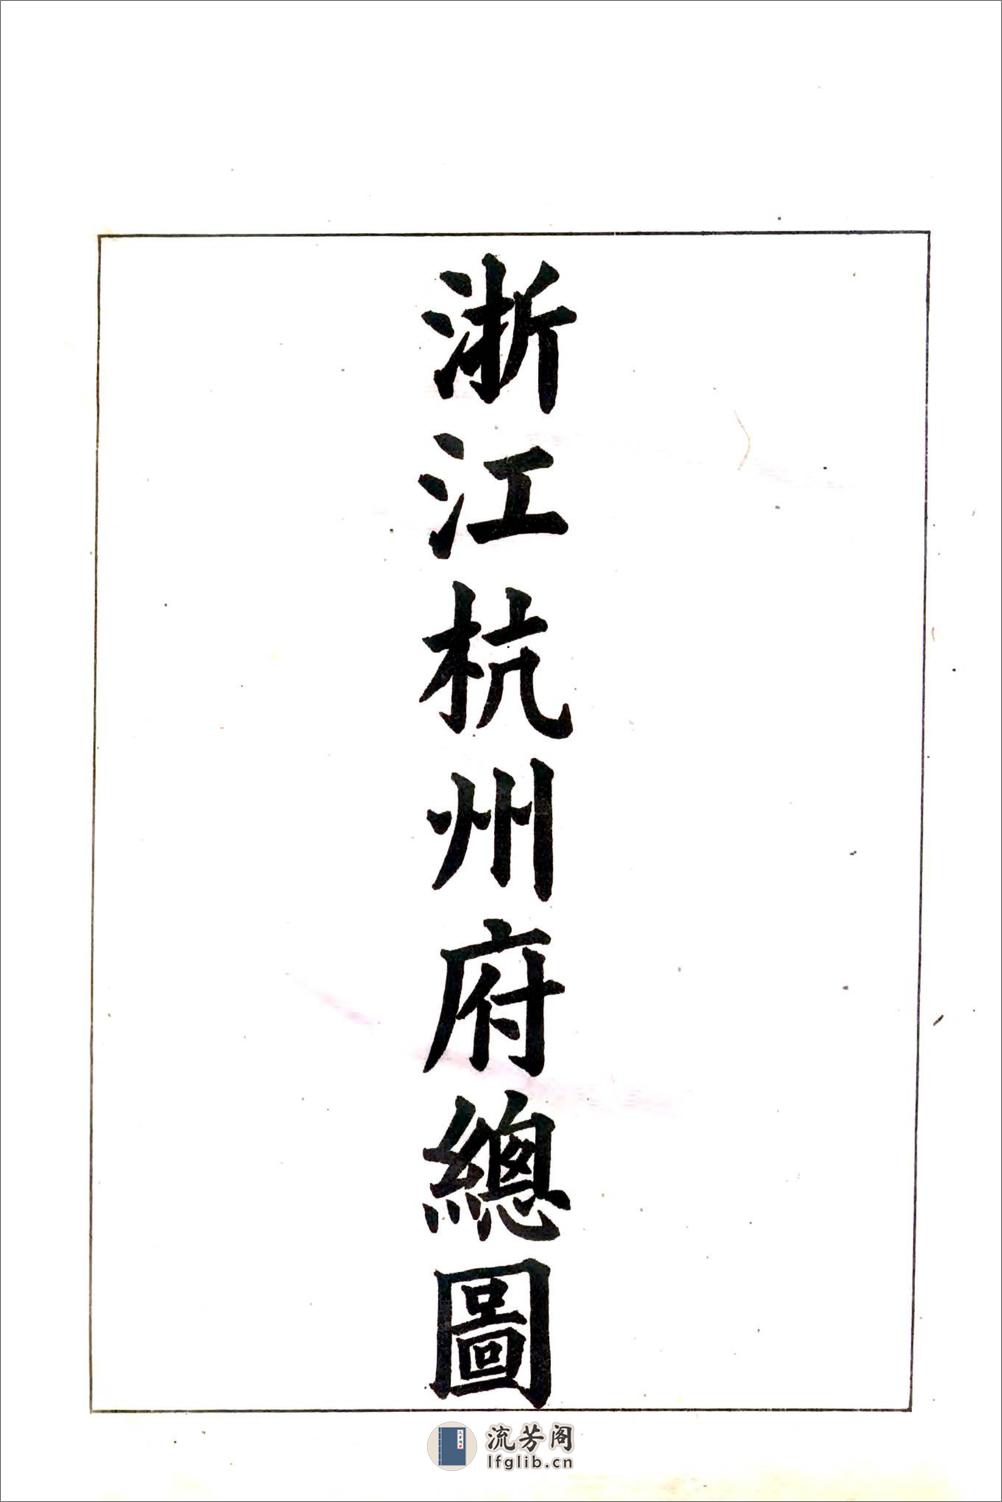 浙江杭州府總圖
流芳阁
lfglib.cn